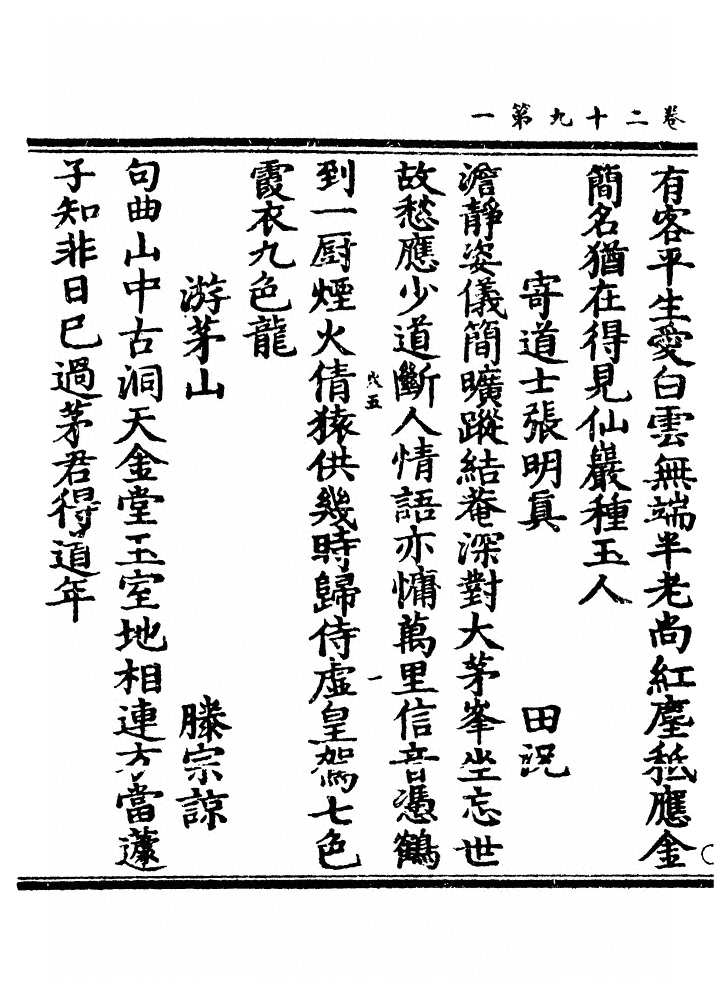 卷二十九第一
有客平生愛白雲無端半老尚紅塵秪應金
簡名猶在得見仙巖種玉人
寄道士張明真 田況
澹靜姿儀簡曠蹤結菴深對大茅峯坐忘世
故愁應少道斷人情語亦慵萬里信音憑鶴
戍五 一
到一厨煙火倩猿供幾時歸侍虛皇駕七色
霞衣九色龍
游茅山 滕宗諒
句曲山中古洞天金堂玉室地相連方當蘧
子知非日巳過茅君得道年